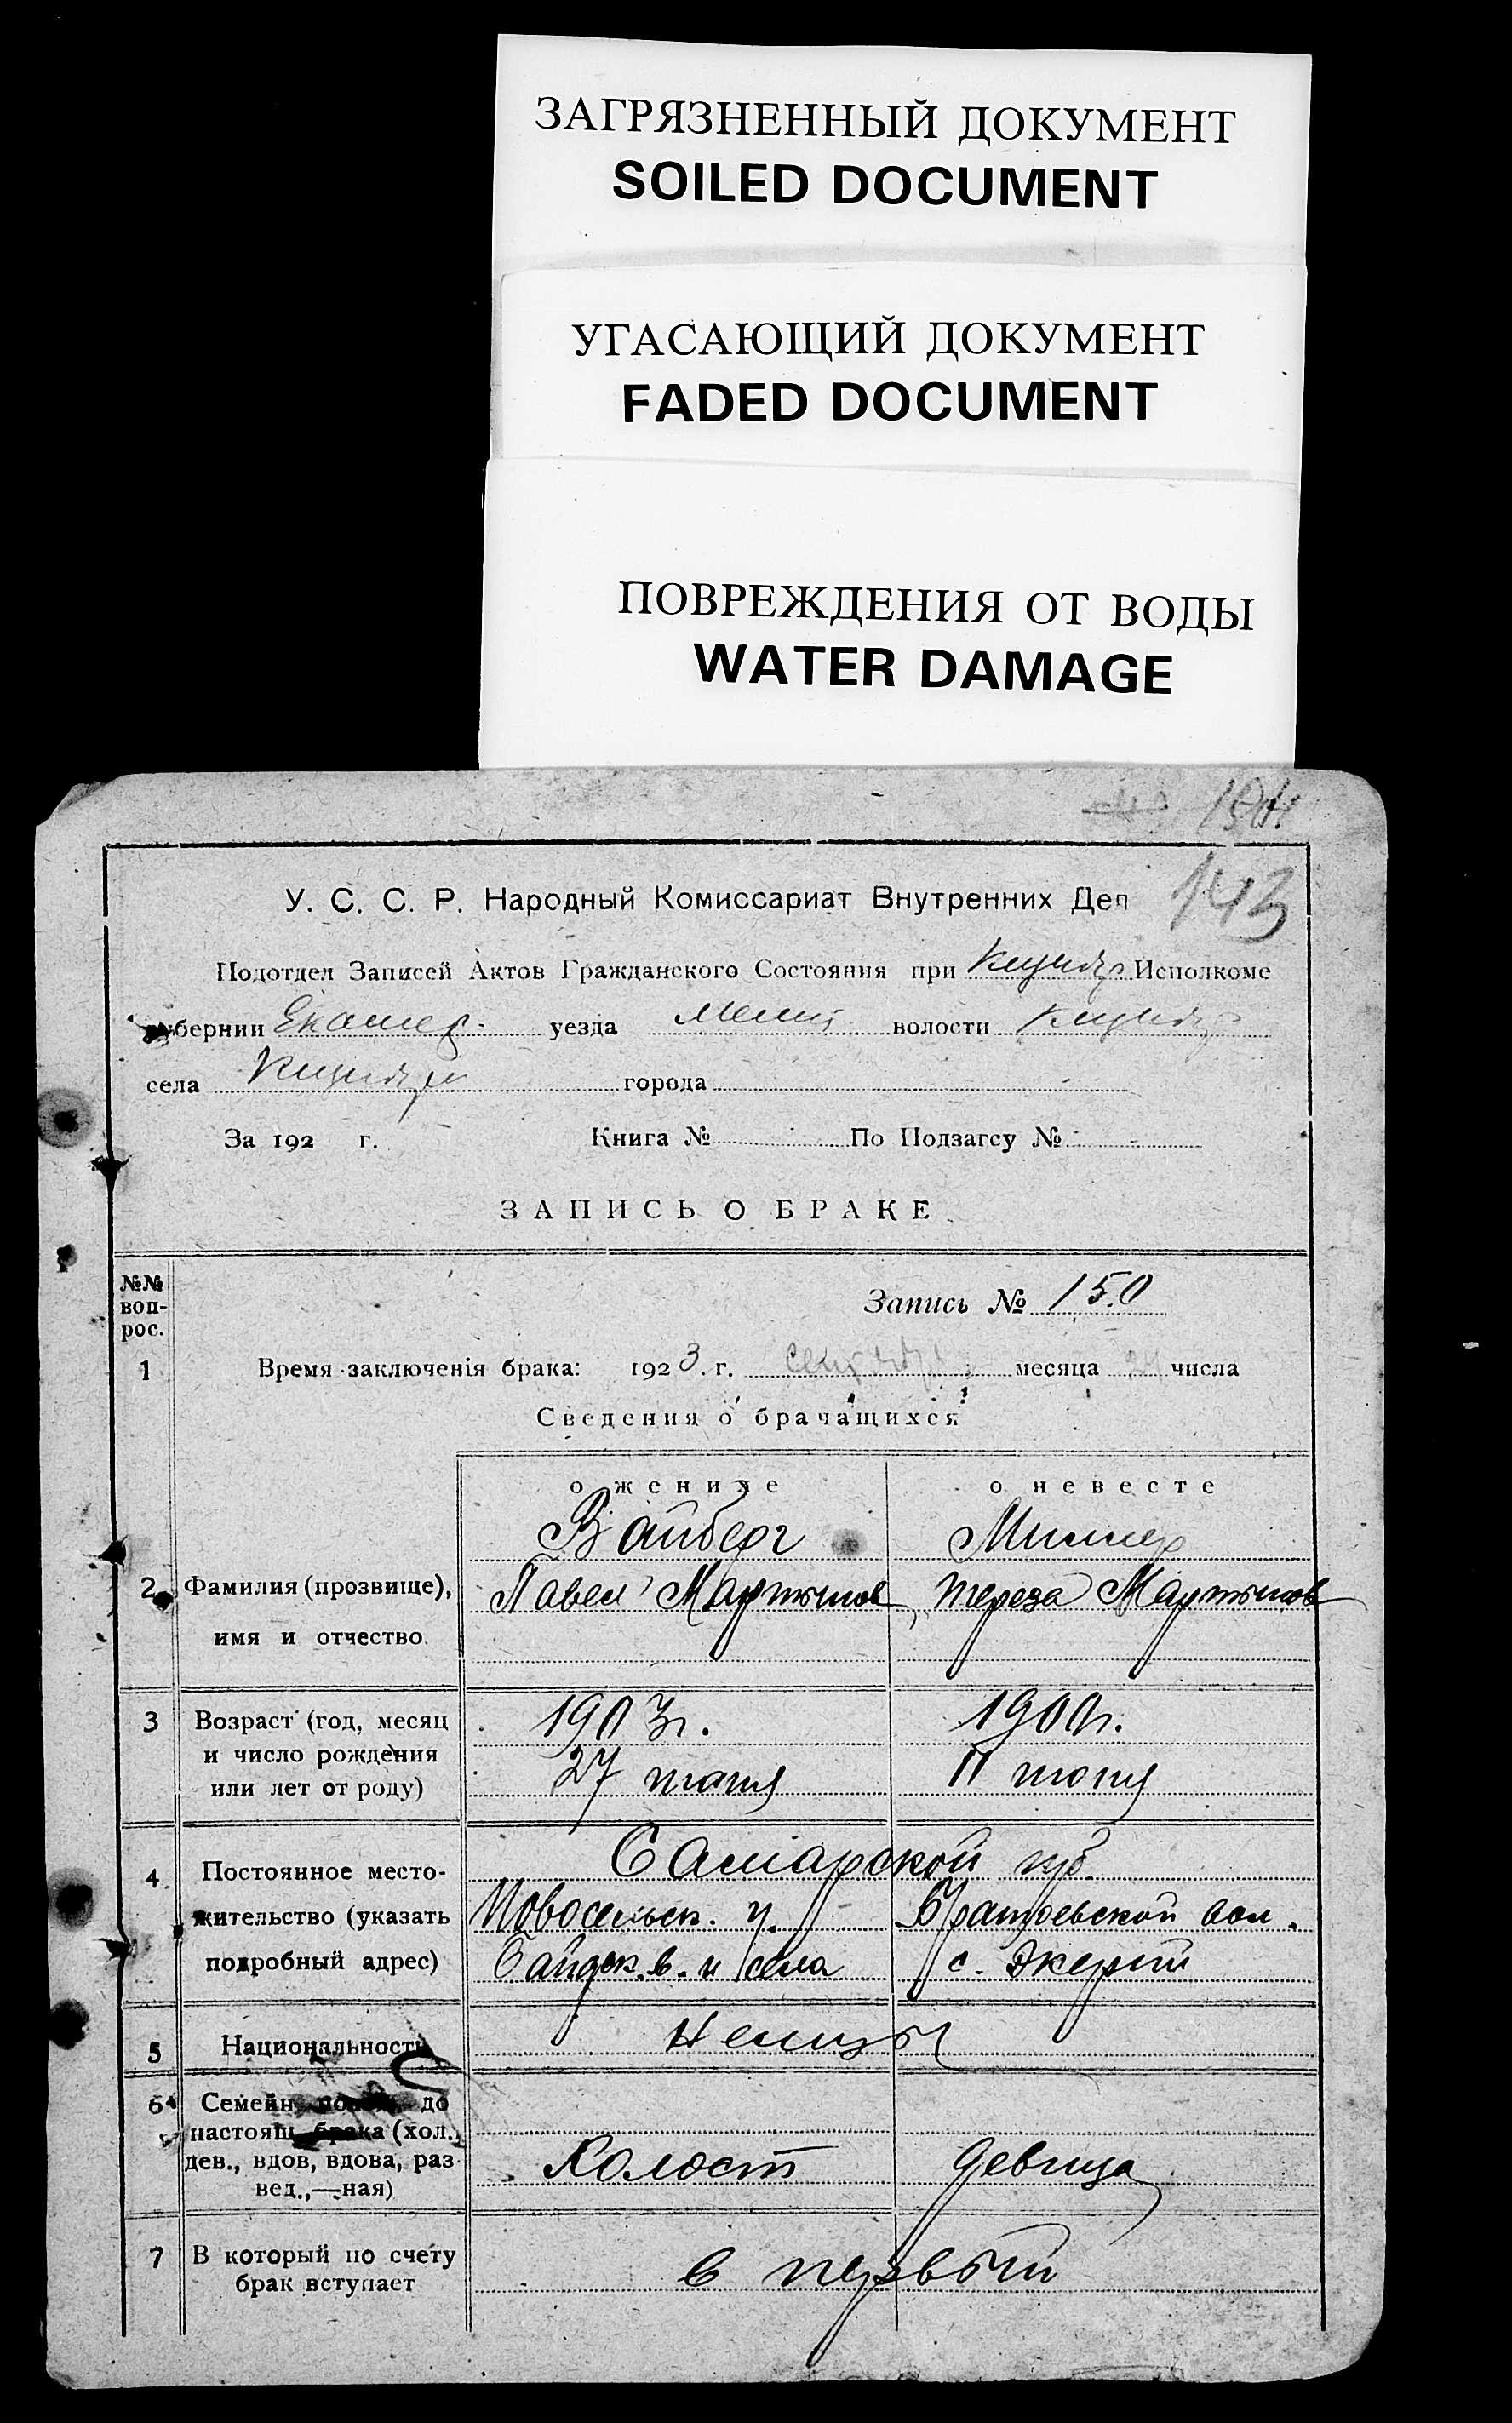 ЗАГРЯЗНЕННЫЙ ДОКУМЕНТ
SOILED DOCUMENT
УГАСАЮЩИЙ ДОКУМЕНТ
FADED DOCUMENT
ПОВРЕЖДЕНИЯ ОТ ВОДЫ
WATER DAMAGE
143
У. С. С. Р. Народный Комиссариат Внутренних Дел
Подотдел Записей Актов Гражданского Состояния при Исполкоме
губернии Екатер. уезда волости
села города
За 192 г. Книга № По Подзагсу №
ЗАПИСЬ О БРАКЕ
№№ воп-
рос.
Запись № 150
1 Время заключенія брака: 1923 г. месяца числа
Сведения о брачащихся
о женихе о невесте
Вайберг Миллер
2 Фамилия (прозвище), Павел Мартынов Тереза Мартынов
имя и отчество
3 Возраст (год, месяц 1903 г. 1900 г.
и число рождения 27 11
или лет от роду)
4. Постоянное место- Самарской губ.
жительство (указать Новосельск. у. вол.
подробный адрес) в. и села с.
5 Национальность Немцы
6 Семейн. полож. до
настоящ. брака (хол.,
дев., вдов, вдова, раз- Холост девица
вед.,—ная)
7 В который по счету в первый
брак вступает